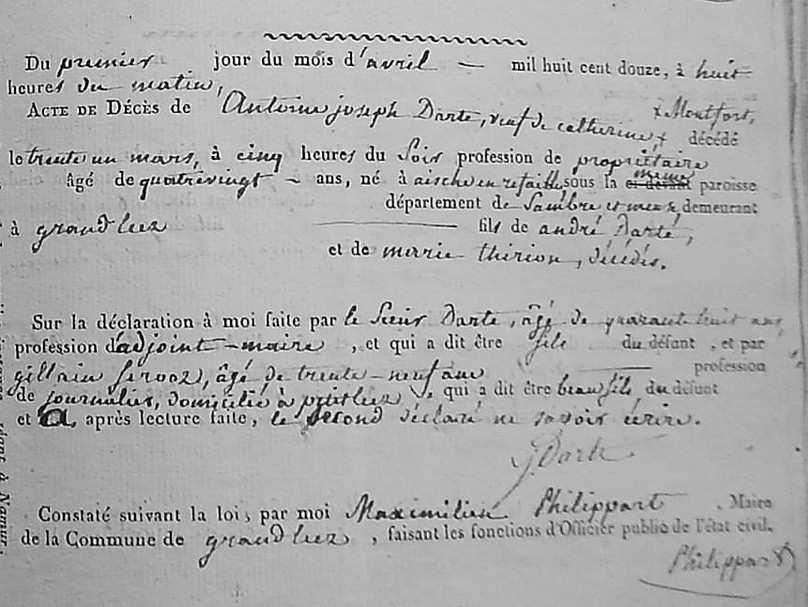 Du premier jour du mois d'avril — mil huit cent douze, à huit
heures du matin,
ACTE DE DÉCÈS de Antoine joseph Darte, veuf de catherine x x Montfort,
décédé
le trente un mars, à cinq heures du soir profession de propriétaire
âgé de quatrevingt - ans, né à aische en refaille sous la ci-devant même paroisse
département de Sambre et meuse, demeurant
à grand leez fils de andré Darte,
et de marie thirion, décédés.
Sur la déclaration à moi faite par le Sieur Darte, âgé de quarante huit ans,
profession d'adjoint-maire, et qui a dit être fils du défunt, et par
gillain, âgé de trente-neuf ans profession
de journalier, domicilié à petit leez, qui a dit être beau fils du défunt
et a, après lecture faite, le second déclaré ne savoir écrire.
J Darte
Constaté suivant la loi, par moi Maximilien Philippart, Maire
de la Commune de grand leez, faisant les fonctions d'Officier public de l'état civil.
Philippart